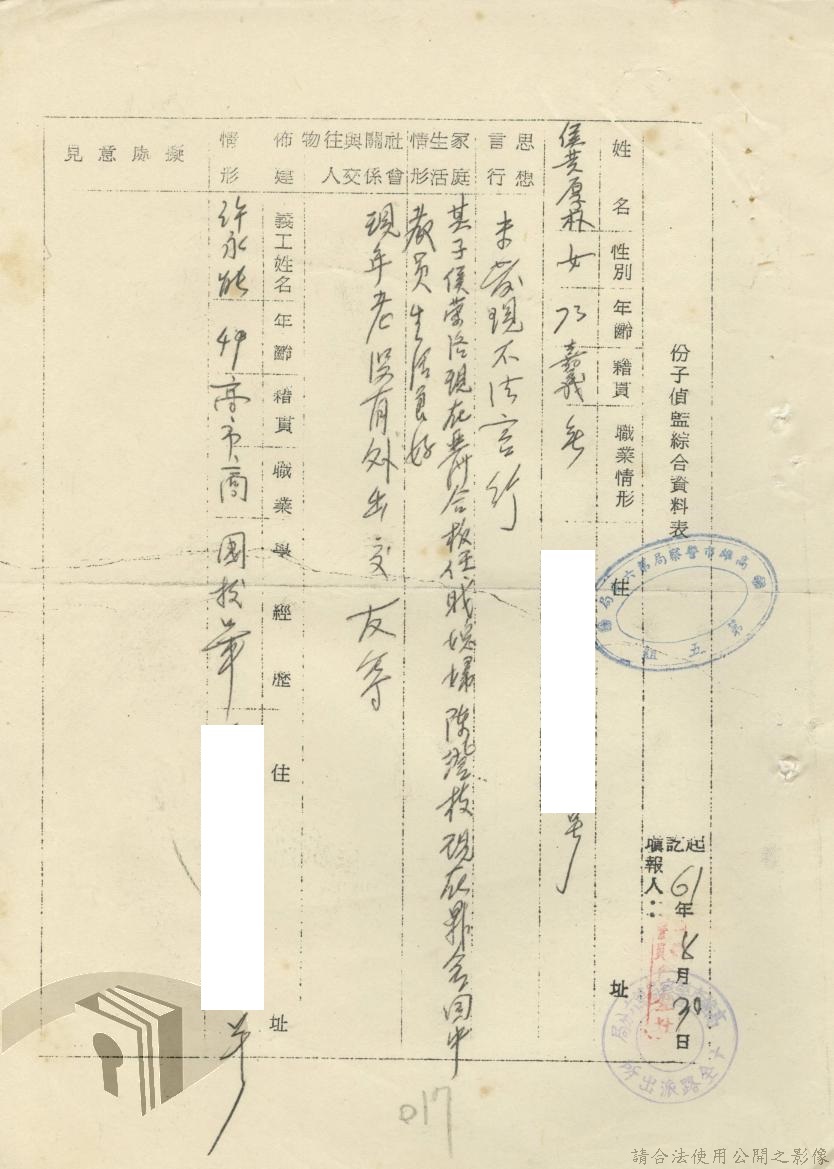 份子偵監綜合資料表
起訖 61年8月30日
填報人：
姓名 性別 年齡 籍貫 職業情形 住址
侯黃厚朴 女 73 嘉義 無 號
思想言行
未發現不法言行
家庭生活情形
其子侯榮洛現在 合板任職媳婦陳澄枝現在鼎金國中
教員生活良好
社會關係與交往人物
現年老沒有外出交友等
佈建情形
義工姓名 年齡 籍貫 職業 學經歷 住址
許永能 49 高市 商 國校畢 號
擬處意見
高雄市警察局第六分局
第五組
十全路派出所
017
請合法使用公開之影像